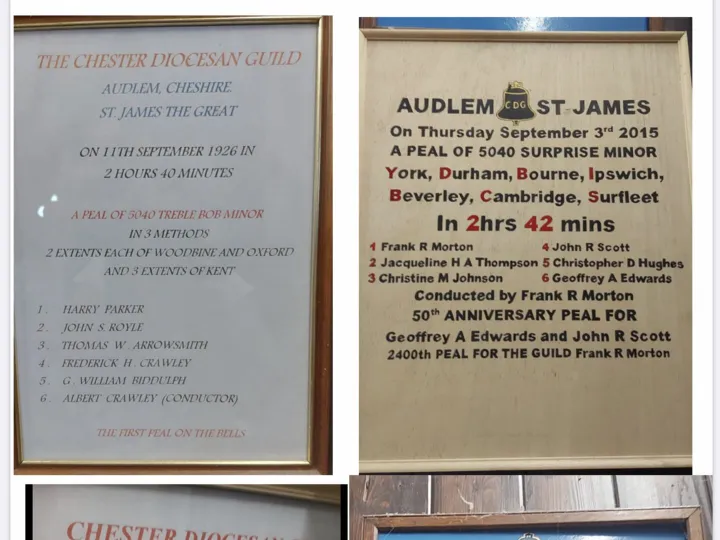 THE CHESTER DIOCESAN GUILD
AUDLEM, CHESHIRE.
ST. JAMES THE GREAT
ON 11TH SEPTEMBER 1926 IN
2 HOURS 40 MINUTES
A PEAL OF 5040 TREBLE BOB MINOR
IN 3 METHODS
2 EXTENTS EACH OF WOODBINE AND OXFORD
AND 3 EXTENTS OF KENT
1. HARRY PARKER
2. JOHN S. ROYLE
3. THOMAS W. ARROWSMITH
4. FREDERICK H. CRAWLEY
5. G. WILLIAM BIDDULPH
6. ALBERT CRAWLEY (CONDUCTOR)
THE FIRST PEAL ON THE BELLS
AUDLEM CDG ST JAMES
On Thursday September 3rd 2015
A PEAL OF 5040 SURPRISE MINOR
York, Durham, Bourne, Ipswich,
Beverley, Cambridge, Surfleet
In 2hrs 42 mins
1 Frank R Morton 4 John R Scott
2 Jacqueline H A Thompson 5 Christopher D Hughes
3 Christine M Johnson 6 Geoffrey A Edwards
Conducted by Frank R Morton
50th ANNIVERSARY PEAL FOR
Geoffrey A Edwards and John R Scott
2400th PEAL FOR THE GUILD Frank R Morton
CHESTER DIOCESAN